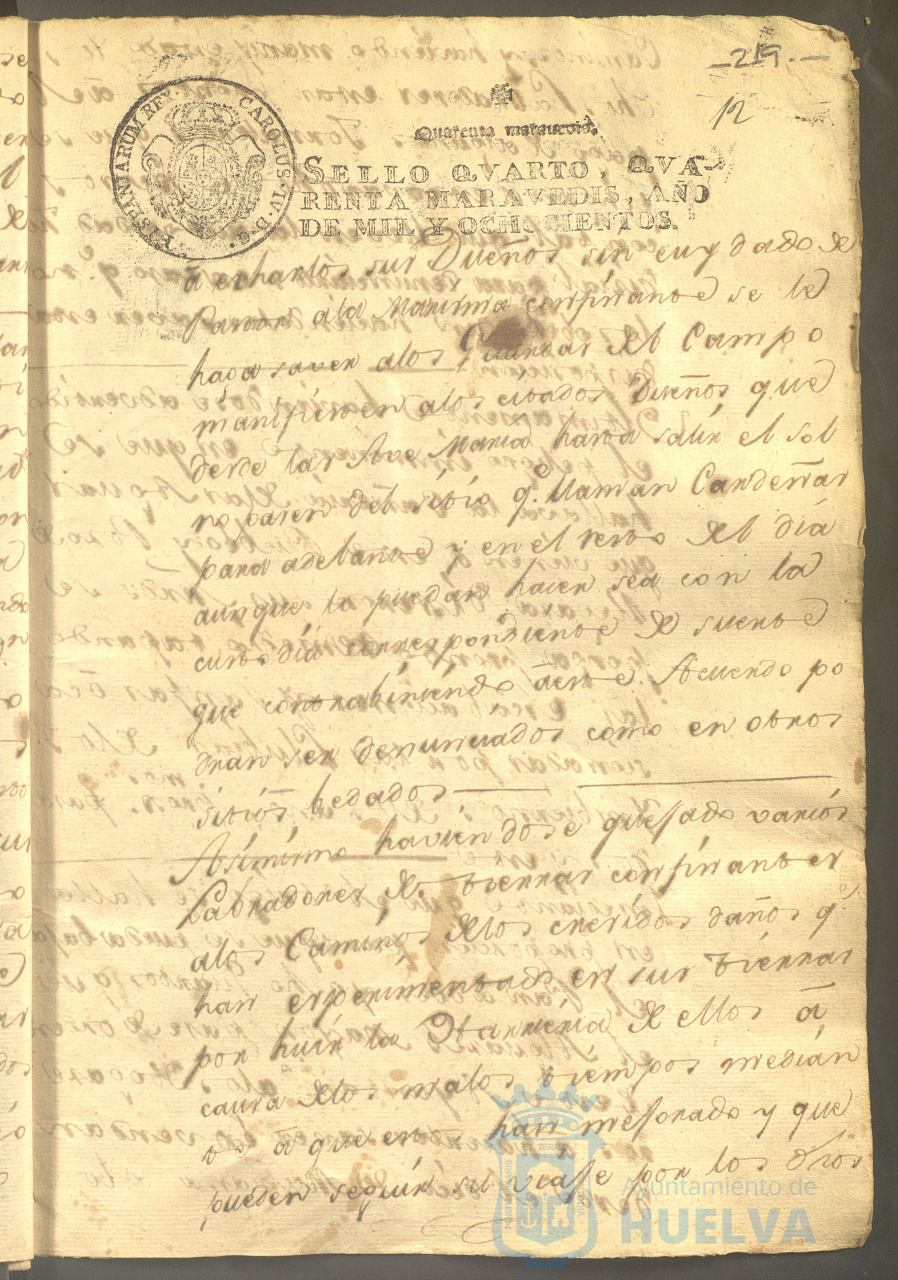 -219.-
12
HISPANIARUM REX. CAROLUS. IV. D. G.
Quarenta maravedis.
SELLO QVARTO, QVA-
RENTA MARAVEDIS, AÑO
DE MIL Y OCHOCIENTOS.
a echarlos sus Dueños sin cuydado de
Pastor ala Marisma confinante se le
haga saver alos Guardas del Campo
manifiesten alos citados Dueños que
desde las Ave Maria hasta salir el sol
no pasen del sitio q.e llaman Cardeñas
para adelante y en el resto del dia
aunque lo puedan hacer sea con la
custodia correspondiente de suerte
que contrabiniendo a este Acuerdo po
dran ser denunciados como en otros
sitios bedados
Asimismo haviendose quejado varios
Labradores de tierras confinantes
alos Caminos delos crecidos daños q.e
han experimentado en sus tierras
por huir la Harrieria de ellos á
causa delos malos tiempos median
te á que estos han mejorado y que
pueden seguir su viaje por los dhos
Ayuntamiento de
HUELVA